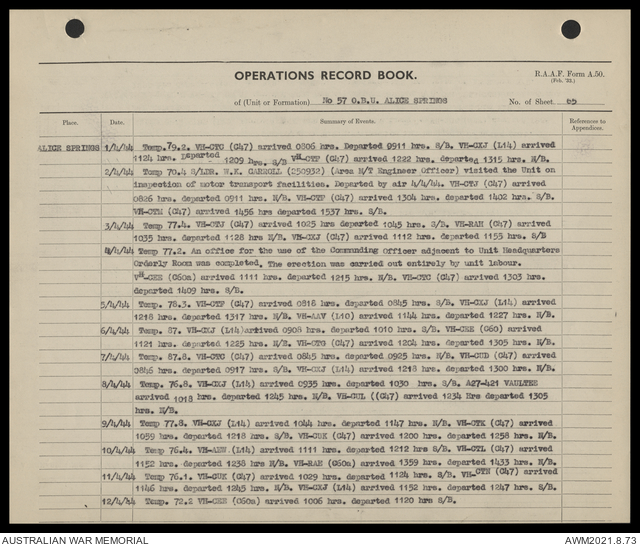 OPERATIONS RECORD BOOK.
R.A.A.F. Form A.50.
(Feb. '23.)
of (Unit or Formation) No 57 O.B.U. ALICE SPRINGS No. of Sheet 65
Place. Date. Summary of Events. References to Appendices.
ALICE SPRINGS 1/4/44 Temp.79.2. VH-CTC (C47) arrived 0806 hrs. Departed 0911 hrs. S/B. VH-CXJ (L14) arrived
1124 hrs. Departed 1209 hrs. S/B VH-CTF (C47) arrived 1222 hrs. departed 1315 hrs. N/B.
2/4/44 Temp 70.4 S/LDR. W.K. CARROLL (250932) (Area M/T Engineer Officer) visited the Unit on
inspection of motor transport facilities. Departed by air 4/4/44. VH-CTJ (C47) arrived
0826 hrs. departed 0911 hrs. N/B. VH-CTF (C47) arrived 1304 hrs. departed 1402 hrs. S/B.
VH-CTM (C47) arrived 1456 hrs departed 1537 hrs. S/B.
3/4/44 Temp. 77.4. VH-CTJ (C47) arrived 1025 hrs departed 1045 hrs. S/B. VH-RAH (C47) arrived
1035 hrs. departed 1128 hrs N/B. VH-CXJ (L14) arrived 1112 hrs. departed 1153 hrs. S/B
4/4/44 Temp 77.2. An office for the use of the Commanding Officer adjacent to Unit Headquarters
Orderly Room was completed. The erection was carried out entirely by unit labour.
VH-CEE (G60a) arrived 1111 hrs. departed 1215 hrs. N/B. VH-CTC (C47) arrived 1303 hrs.
departed 1409 hrs. S/B.
5/4/44 Temp. 78.3. VH-CTF (C47) arrived 0818 hrs. departed 0845 hrs. S/B. VH-CXJ (L14) arrived
1218 hrs. departed 1317 hrs. N/B. VH-AAV (L10) arrived 1144 hrs. departed 1227 hrs. N/B.
6/4/44 Temp. 87. VH-CXJ (L14)arrived 0908 hrs. departed 1010 hrs. S/B. VH-CEE (G60) arrived
1121 hrs. departed 1225 hrs. N/B. VH-CTG (C47) arrived 1204 hrs. departed 1305 hrs. N/B.
7/4/44 Temp. 87.8. VH-CTC (C47) arrived 0845 hrs. departed 0925 hrs. N/B. VH-CUD (C47) arrived
0846 hrs. departed 0917 hrs. S/B. VH-CXJ (L14) arrived 1218 hrs. departed 1300 hrs. N/B.
8/4/44 Temp. 76.8. VH-CXJ (L14) arrived 0935 hrs. departed 1030 hrs. S/B. A27-421 VAULTEE
arrived 1018 hrs. departed 1245 hrs. N/B. VH-CUL ((C47) arrived 1234 Hrs departed 1305
hrs. N/B.
9/4/44 Temp 77.8. VH-CXJ (L14) arrived 1044 hrs. departed 1147 hrs. N/B. VH-CTK (C47) arrived
1059 hrs. departed 1218 hrs. S/B. VH-CUK (C47) arrived 1200 hrs. departed 1258 hrs. N/B.
10/4/44 Temp 76.4. (L14) arrived 1111 hrs. departed 1212 hrs S/B. VH-CTL (C47) arrived
1152 hrs. departed 1238 hrs N/B. VH-RAH (G60a) arrived 1359 hrs. departed 1433 hrs. N/B.
11/4/44 Temp 76.1. VH-CUK (C47) arrived 1029 hrs. departed 1124 hrs. S/B. VH-CTN (C47) arrived
1146 hrs. departed 1245 hrs. N/B. VH-CXJ (L14) arrived 1152 hrs. departed 1247 hrs. S/B.
12/4/44 Temp. 72.2 VH-CEE (G60a) arrived 1006 hrs. departed 1120 hrs S/B.
AUSTRALIAN WAR MEMORIAL AWM2021.8.73